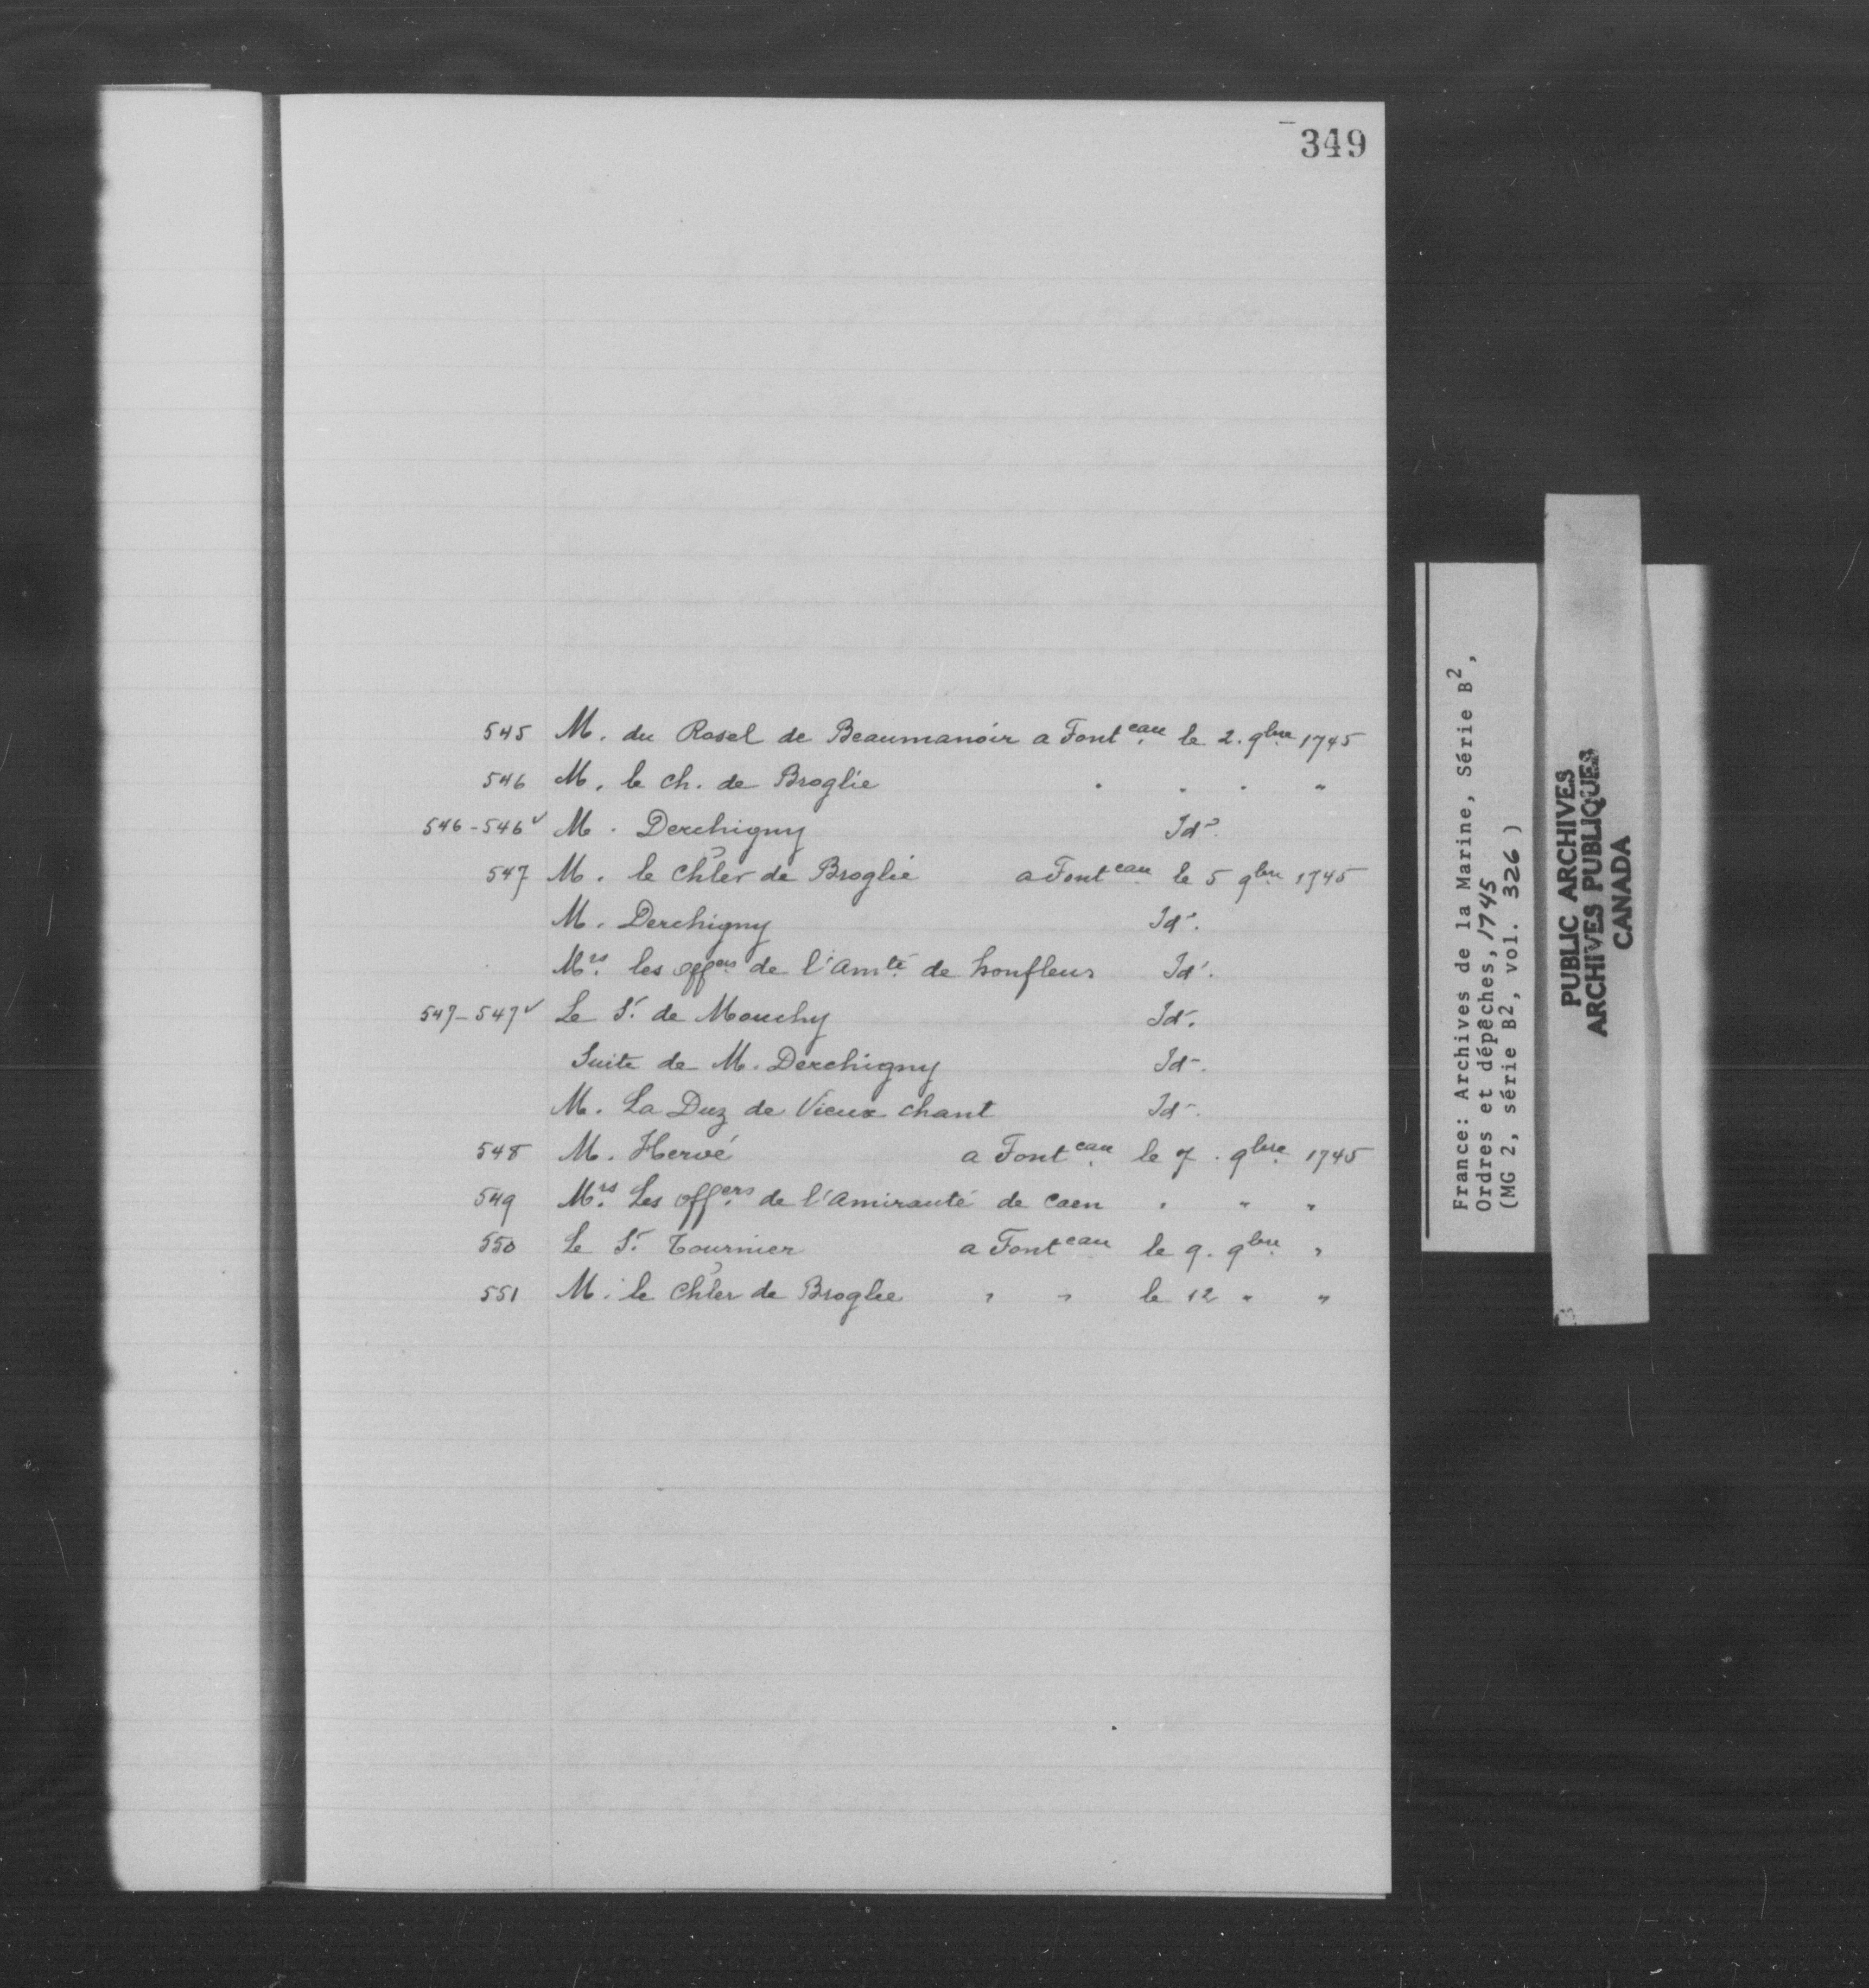 349
545 M. du Rosel de Beaumanoir a Font eau le 2. 9bre 1745
546 M. le ch. de Broglie . . . "
546-546v M. Derchigny Id?
547 M. le Chler de Broglie a Font eau le 5 9bre 1745
M. Derchigny Id.
Mrs. les offers de l'amté de honfleur Id.
547-547v Le Sr. de Mouchy Id.
Suite de M. Derchigny Id.
M. La Duz de Vieux chant Id.
548 M. Hervé a Font eau le 7. 9bre 1745
549 Mrs. Les offers de l'amirauté de Caen " " "
550 Le Sr. Tournier a Font eau le 9. 9bre "
551 M. le Chler de Broglie " " le 12 " "
France: Archives de la Marine, Série B2,
Ordres et dépêches, 1745
(MG 2, série B2, vol. 326)
PUBLIC ARCHIVES
ARCHIVES PUBLIQUES
CANADA